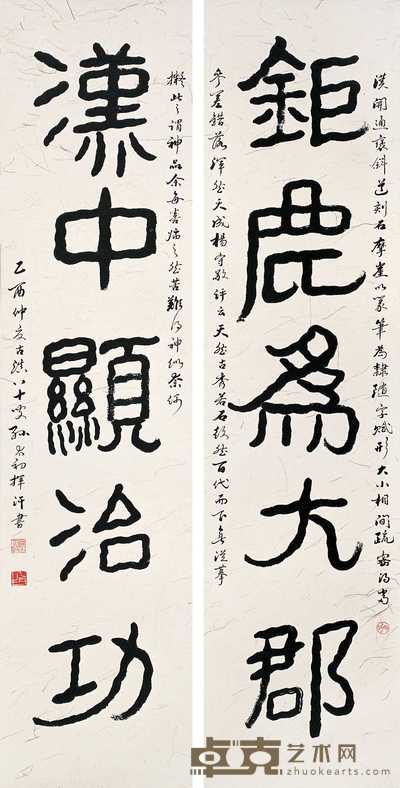 鉅鹿為大郡
漢開通褒斜道刻石摩崖以篆筆為隸隨字賦形大小相間疏密得當
參差錯落渾然天成楊守敬評云天然古秀若石紋然百代而下無從摹
漢中顯治功
擬此之謂神品余每喜臨之然苦難得神似奈何
乙酉仲夏古稀八十叟孫君初揮汗書
卓克艺术网
www.zhuokearts.com